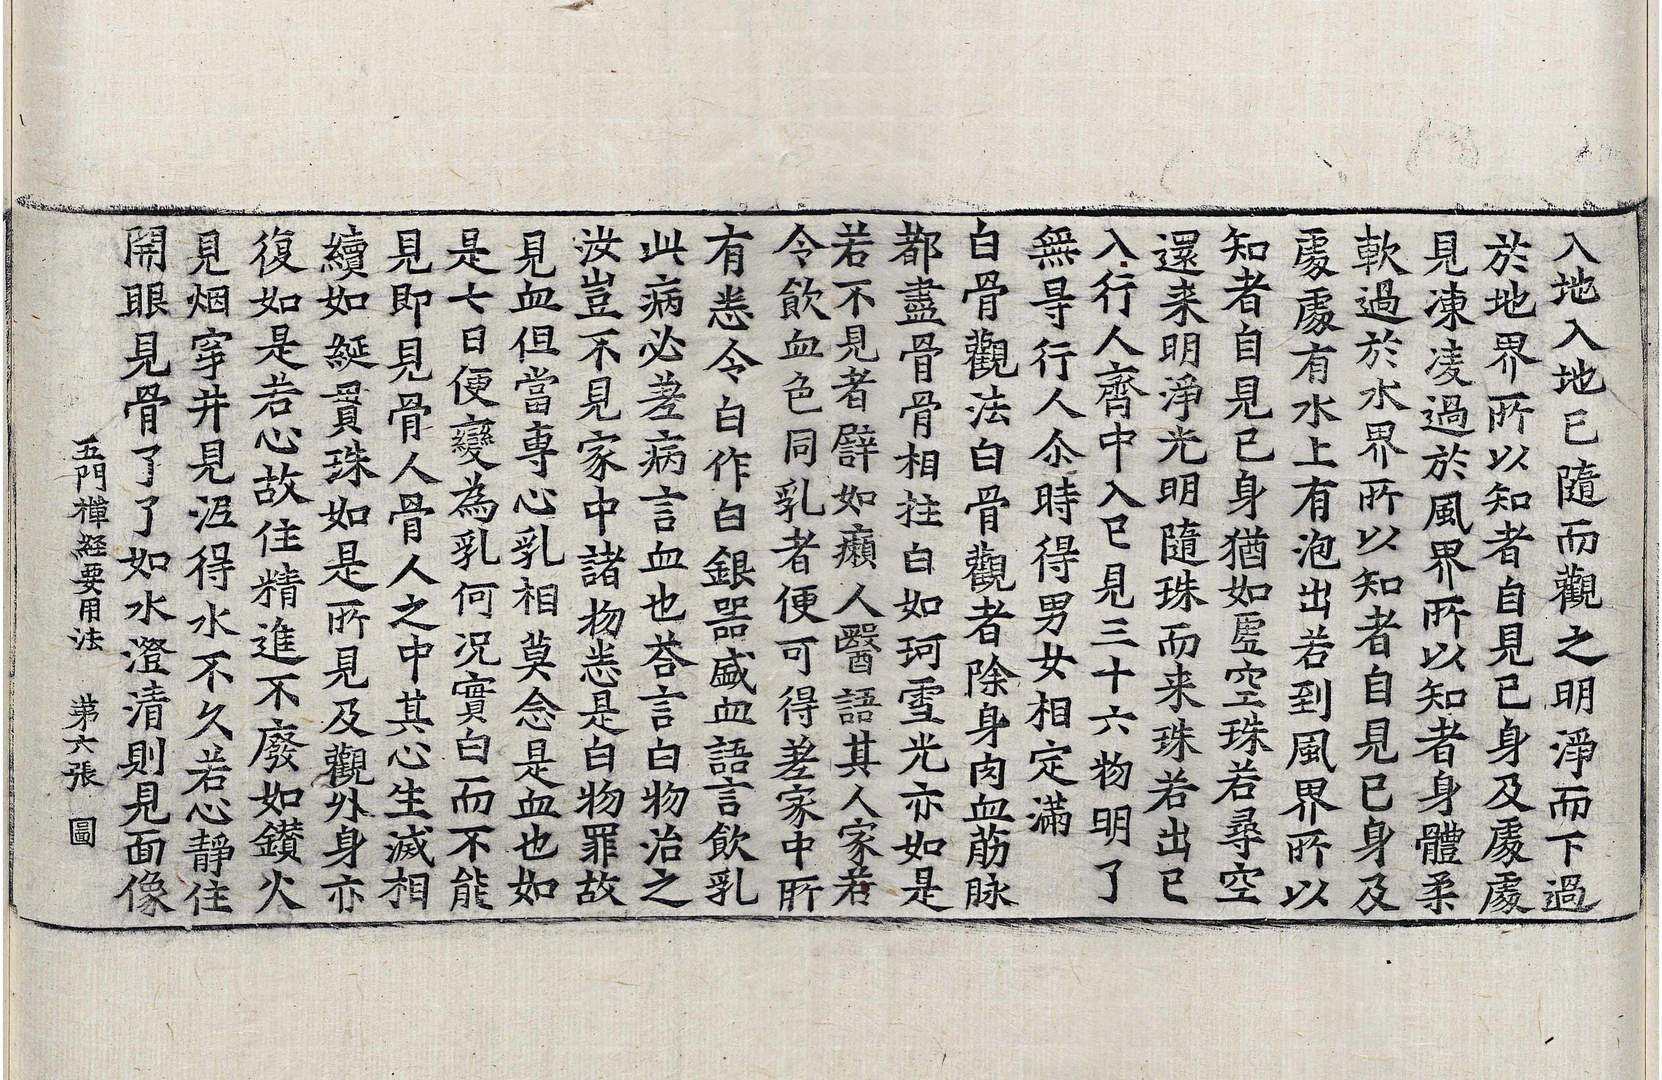 入地入地已隨而觀之明淨而下過
於地界所以知者自見已身及處處
見凍凌過於風界所以知者身體柔
軟過於水界所以知者自見已身及
處處有水上有泡出若到風界所以
知者自見已身猶如虛空珠若尋空
還来明淨光明隨珠而来珠若出已
入行人齊中入已見三十六物明了
無㝵行人尒時得男女相定滿
白骨觀法白骨觀者除身肉血筋脉
都盡骨骨相拄白如珂雪光亦如是
若不見者譬如癩人醫語其人家若
令飲血色同乳者便可得差家中所
有悉令白作白銀器盛血語言飲乳
此病必差病言血也荅言白物治之
汝豈不見家中諸物悉是白物罪故
見血但當專心乳相莫念是血也如
是七日便變為乳何况實白而不能
見即見骨人骨人之中其心生滅相
續如綖貫珠如是所見及觀外身亦
復如是若心故住精進不廢如鑚火
見烟穿井見泥得水不久若心靜住
開眼見骨了了如水澄清則見面像
五門禪經要用法 第六張 圖